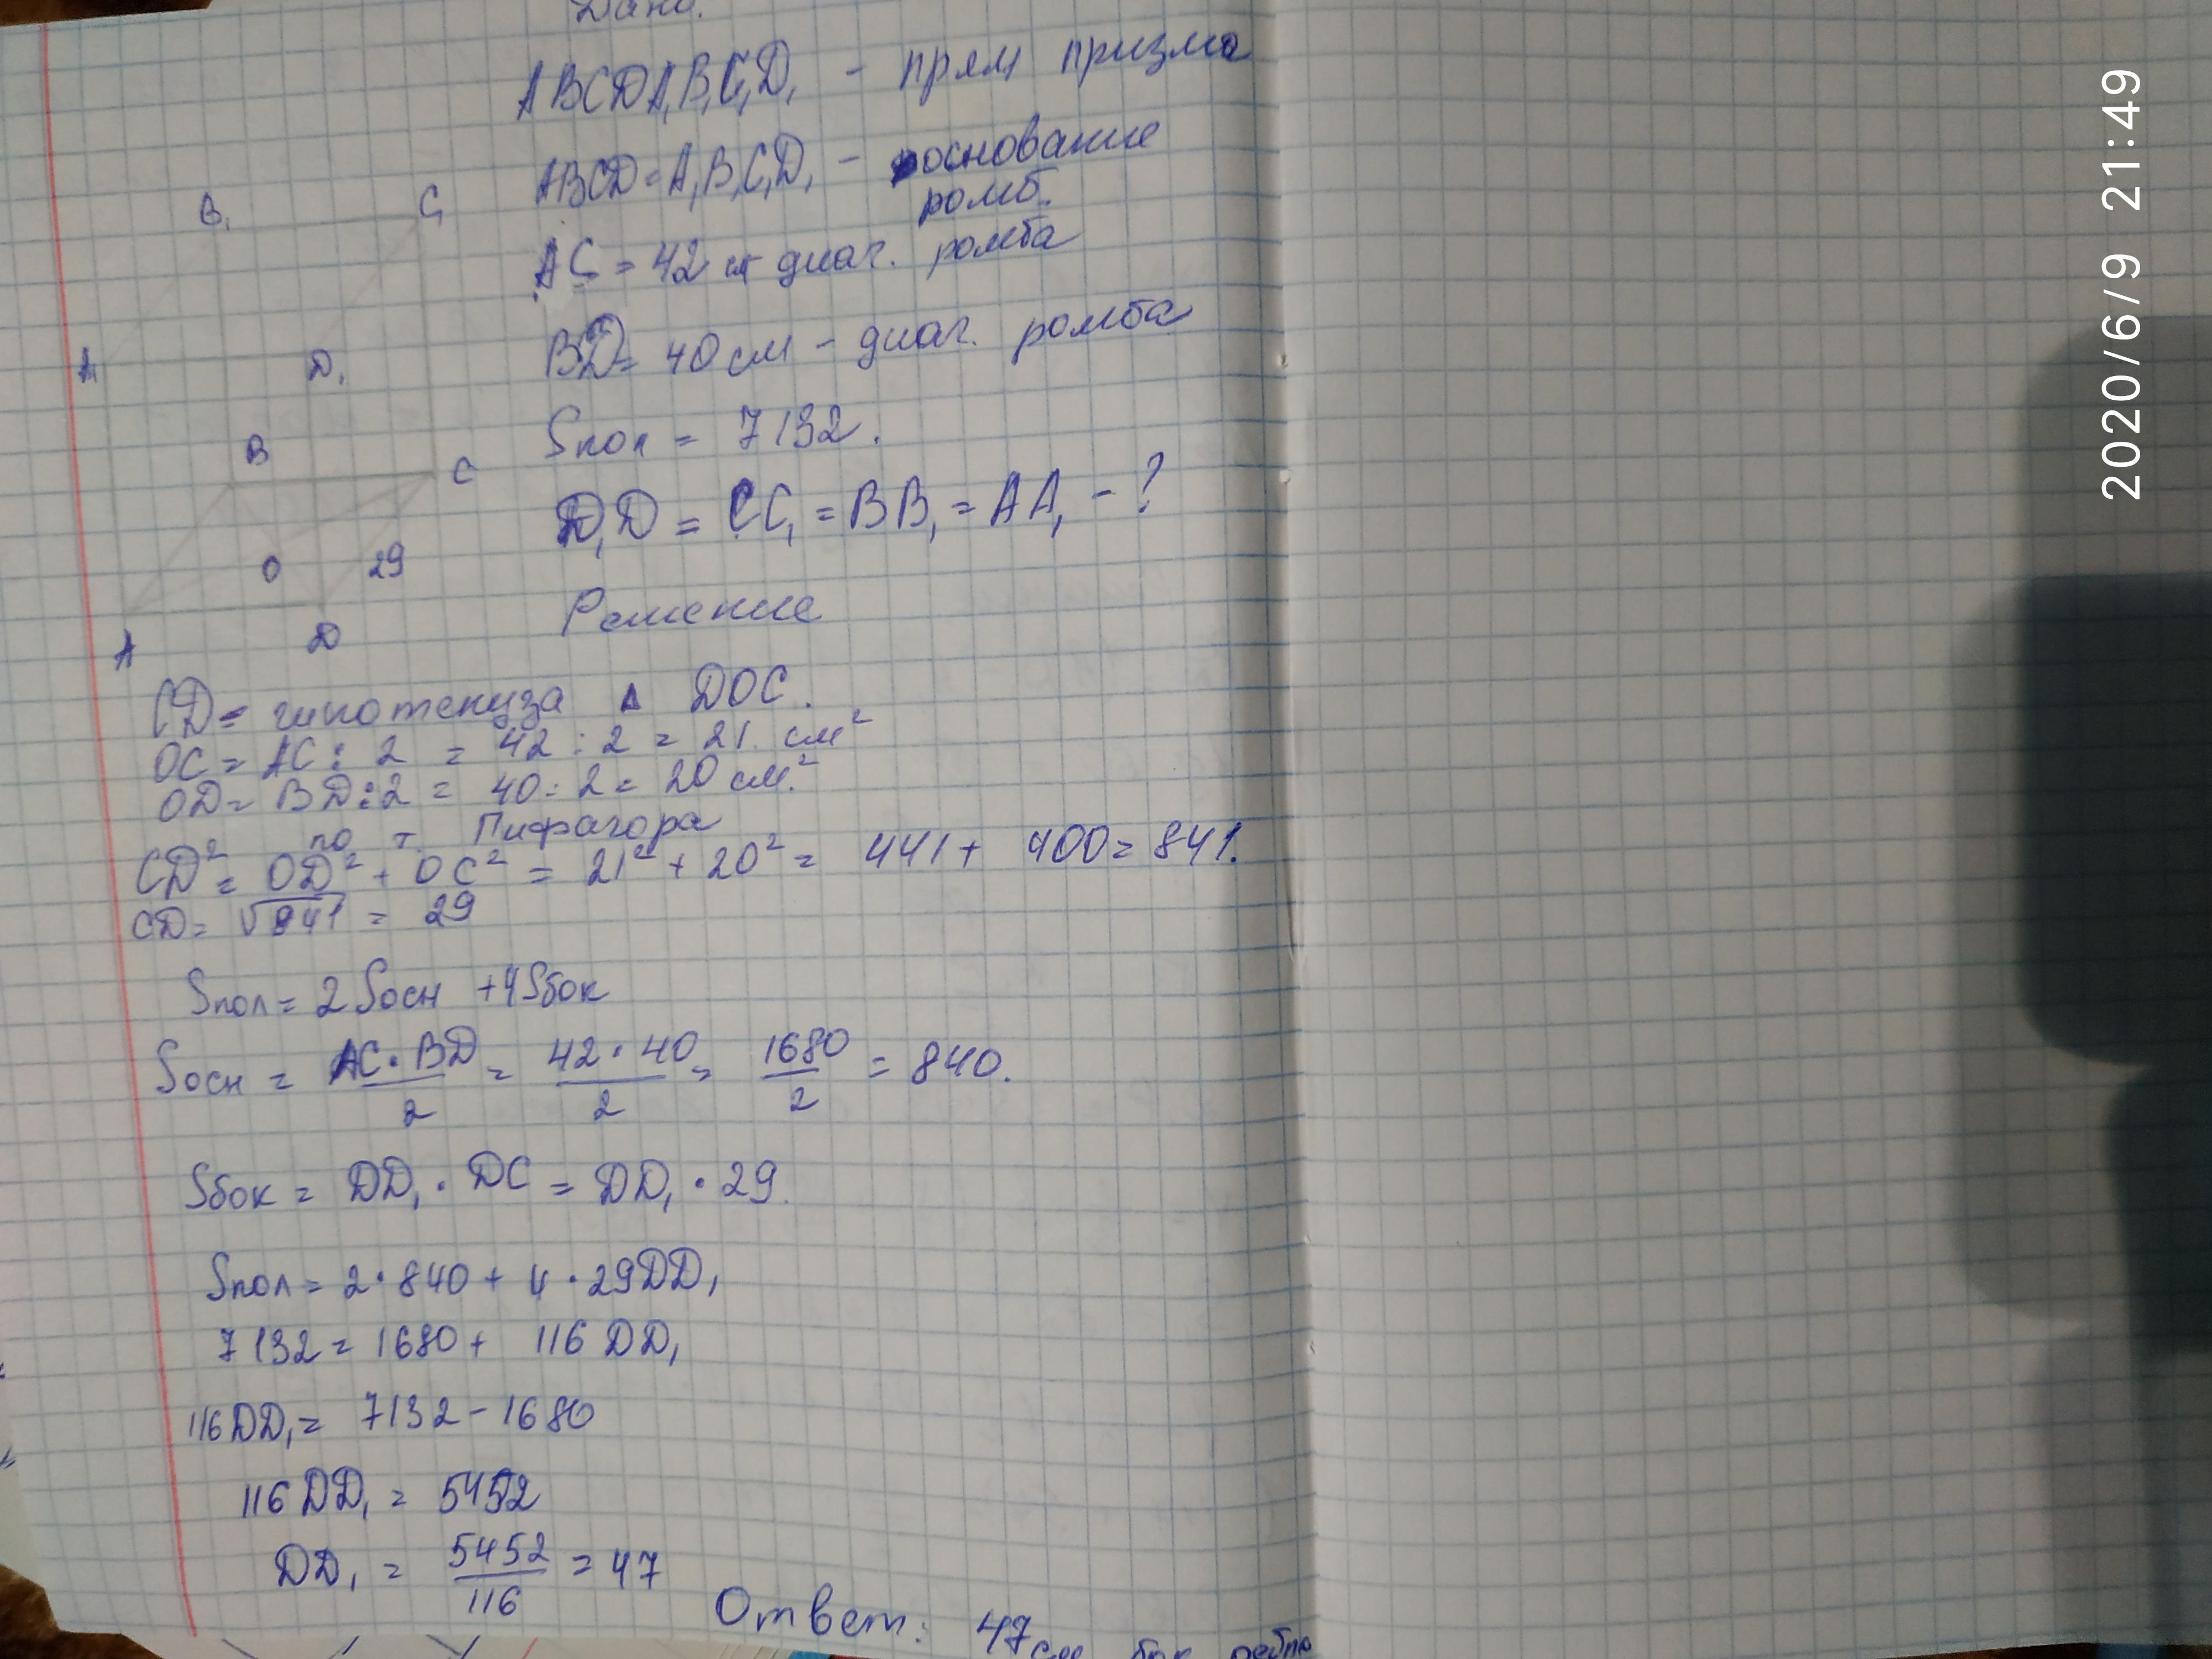 Дано.
ABCDA₁B₁C₁D₁ - прям призма
ABCD = A₁B₁C₁D₁ - основание
ромб.
AC = 42 см диаг. ромба
BD = 40 см - диаг. ромба
Sпол = 7132.
D₁D = CC₁ = BB₁ = AA₁ - ?
B₁ C₁
A₁ D₁
B C
O 29
A D
Решение
CD = гипотенуза Δ DOC.
OC = AC : 2 = 42 : 2 = 21 см²
OD = BD : 2 = 40 : 2 = 20 см.²
по т. Пифагора
CD² = OD² + OC² = 21² + 20² = 441 + 400 = 841.
CD = √841 = 29
Sпол = 2Sосн + 4Sбок
Sосн = AC · BD / 2 = 42 · 40 / 2 = 1680 / 2 = 840.
Sбок = DD₁ · DC = DD₁ · 29.
Sпол = 2 · 840 + 4 · 29DD₁
7132 = 1680 + 116 DD₁
116DD₁ = 7132 - 1680
116 DD₁ = 5452
DD₁ = 5452 / 116 = 47
Ответ: 47 см бок ребро
2020/6/9 21:49